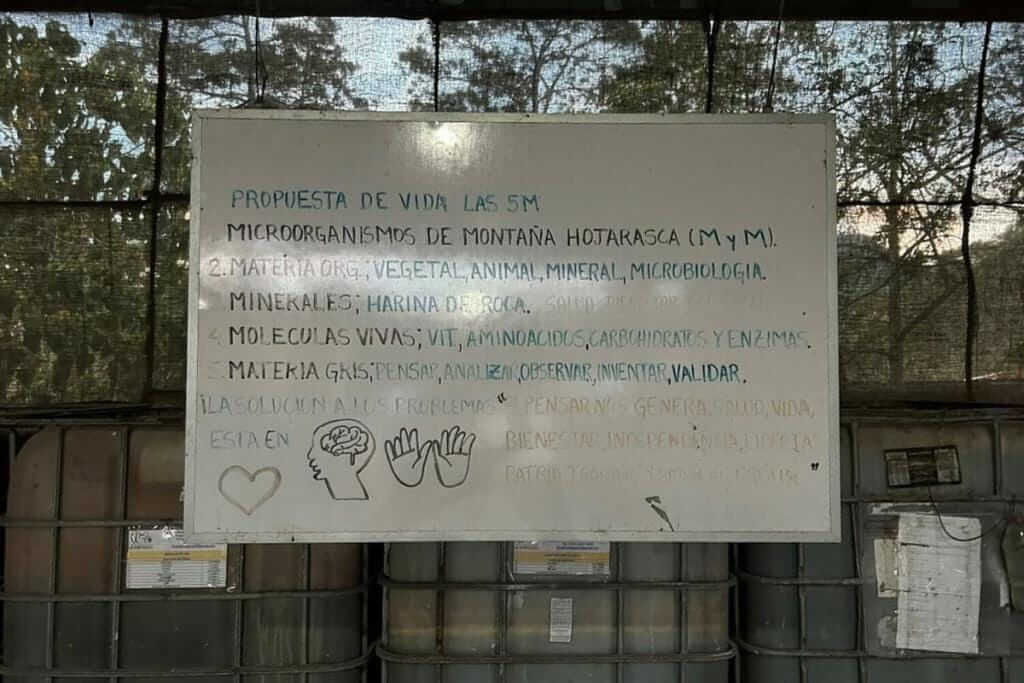 PROPUESTA DE VIDA LAS 5M
MICROORGANISMOS DE MONTAÑA HOJARASCA (M y M).
2. MATERIA ORG.; VEGETAL, ANIMAL, MINERAL, MICROBIOLOGIA.
MINERALES; HARINA DE ROCA. SALUD
4. MOLECULAS VIVAS; VIT, AMINOACIDOS, CARBOHIDRATOS Y ENZIMAS.
5. MATERIA GRIS; PENSAR, ANALIZAR, OBSERVAR, INVENTAR, VALIDAR.
¡LA SOLUCION A LOS PROBLEMAS " PENSAR NOS GENERA SALUD, VIDA,
ESTA EN BIENESTAR, INDEPENDENCIA,
PATRIA "